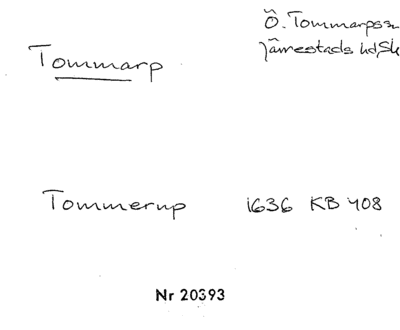 Tommarp
Ö. Tommarps sn
Järrestads hd, Sk
Tommerup 1636 KB 408
Nr 20393